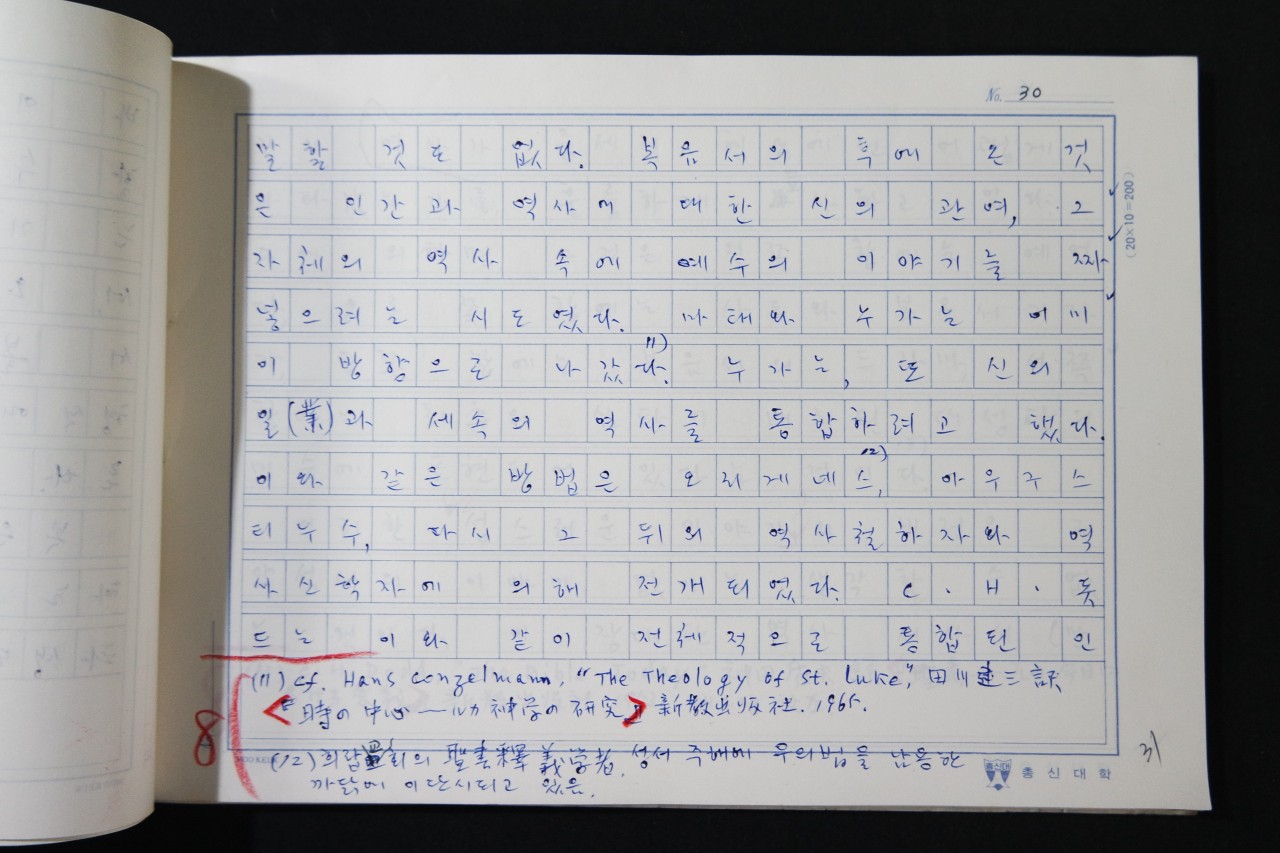 No. 30
말할 것도 없다. 복음서의 후에 온 것
은 인간과 역사에 대한 신의 관여, 그
자체의 역사 속에 예수의 이야기를 짜
넣으려는 시도였다. 마태와 누가는 이미
이 방향으로 나갔다.11) 누가는, 또 신의
일(業)과 세속의 역사를 통합하려고 했다.
이와 같은 방법은 오리게네스,12) 아우구스
티누수, 다시 그 뒤의 역사철하자와 역
사신학자에 의해 전개되었다. C·H·돗
드는 이와 같이 전체적으로 통합된 인
(11) cf Hans Conzelmann, "The Theology of St. Luke," 田川建三訳
『時の中心――ルカ神学の研究』新教出版社. 1965.
(12) 희랍 교회의 聖書釋義学者. 성서 주해에 우의법을 남용한
까닭에 이단시되고 있음.
8
31
(20×10=200)
총신대학